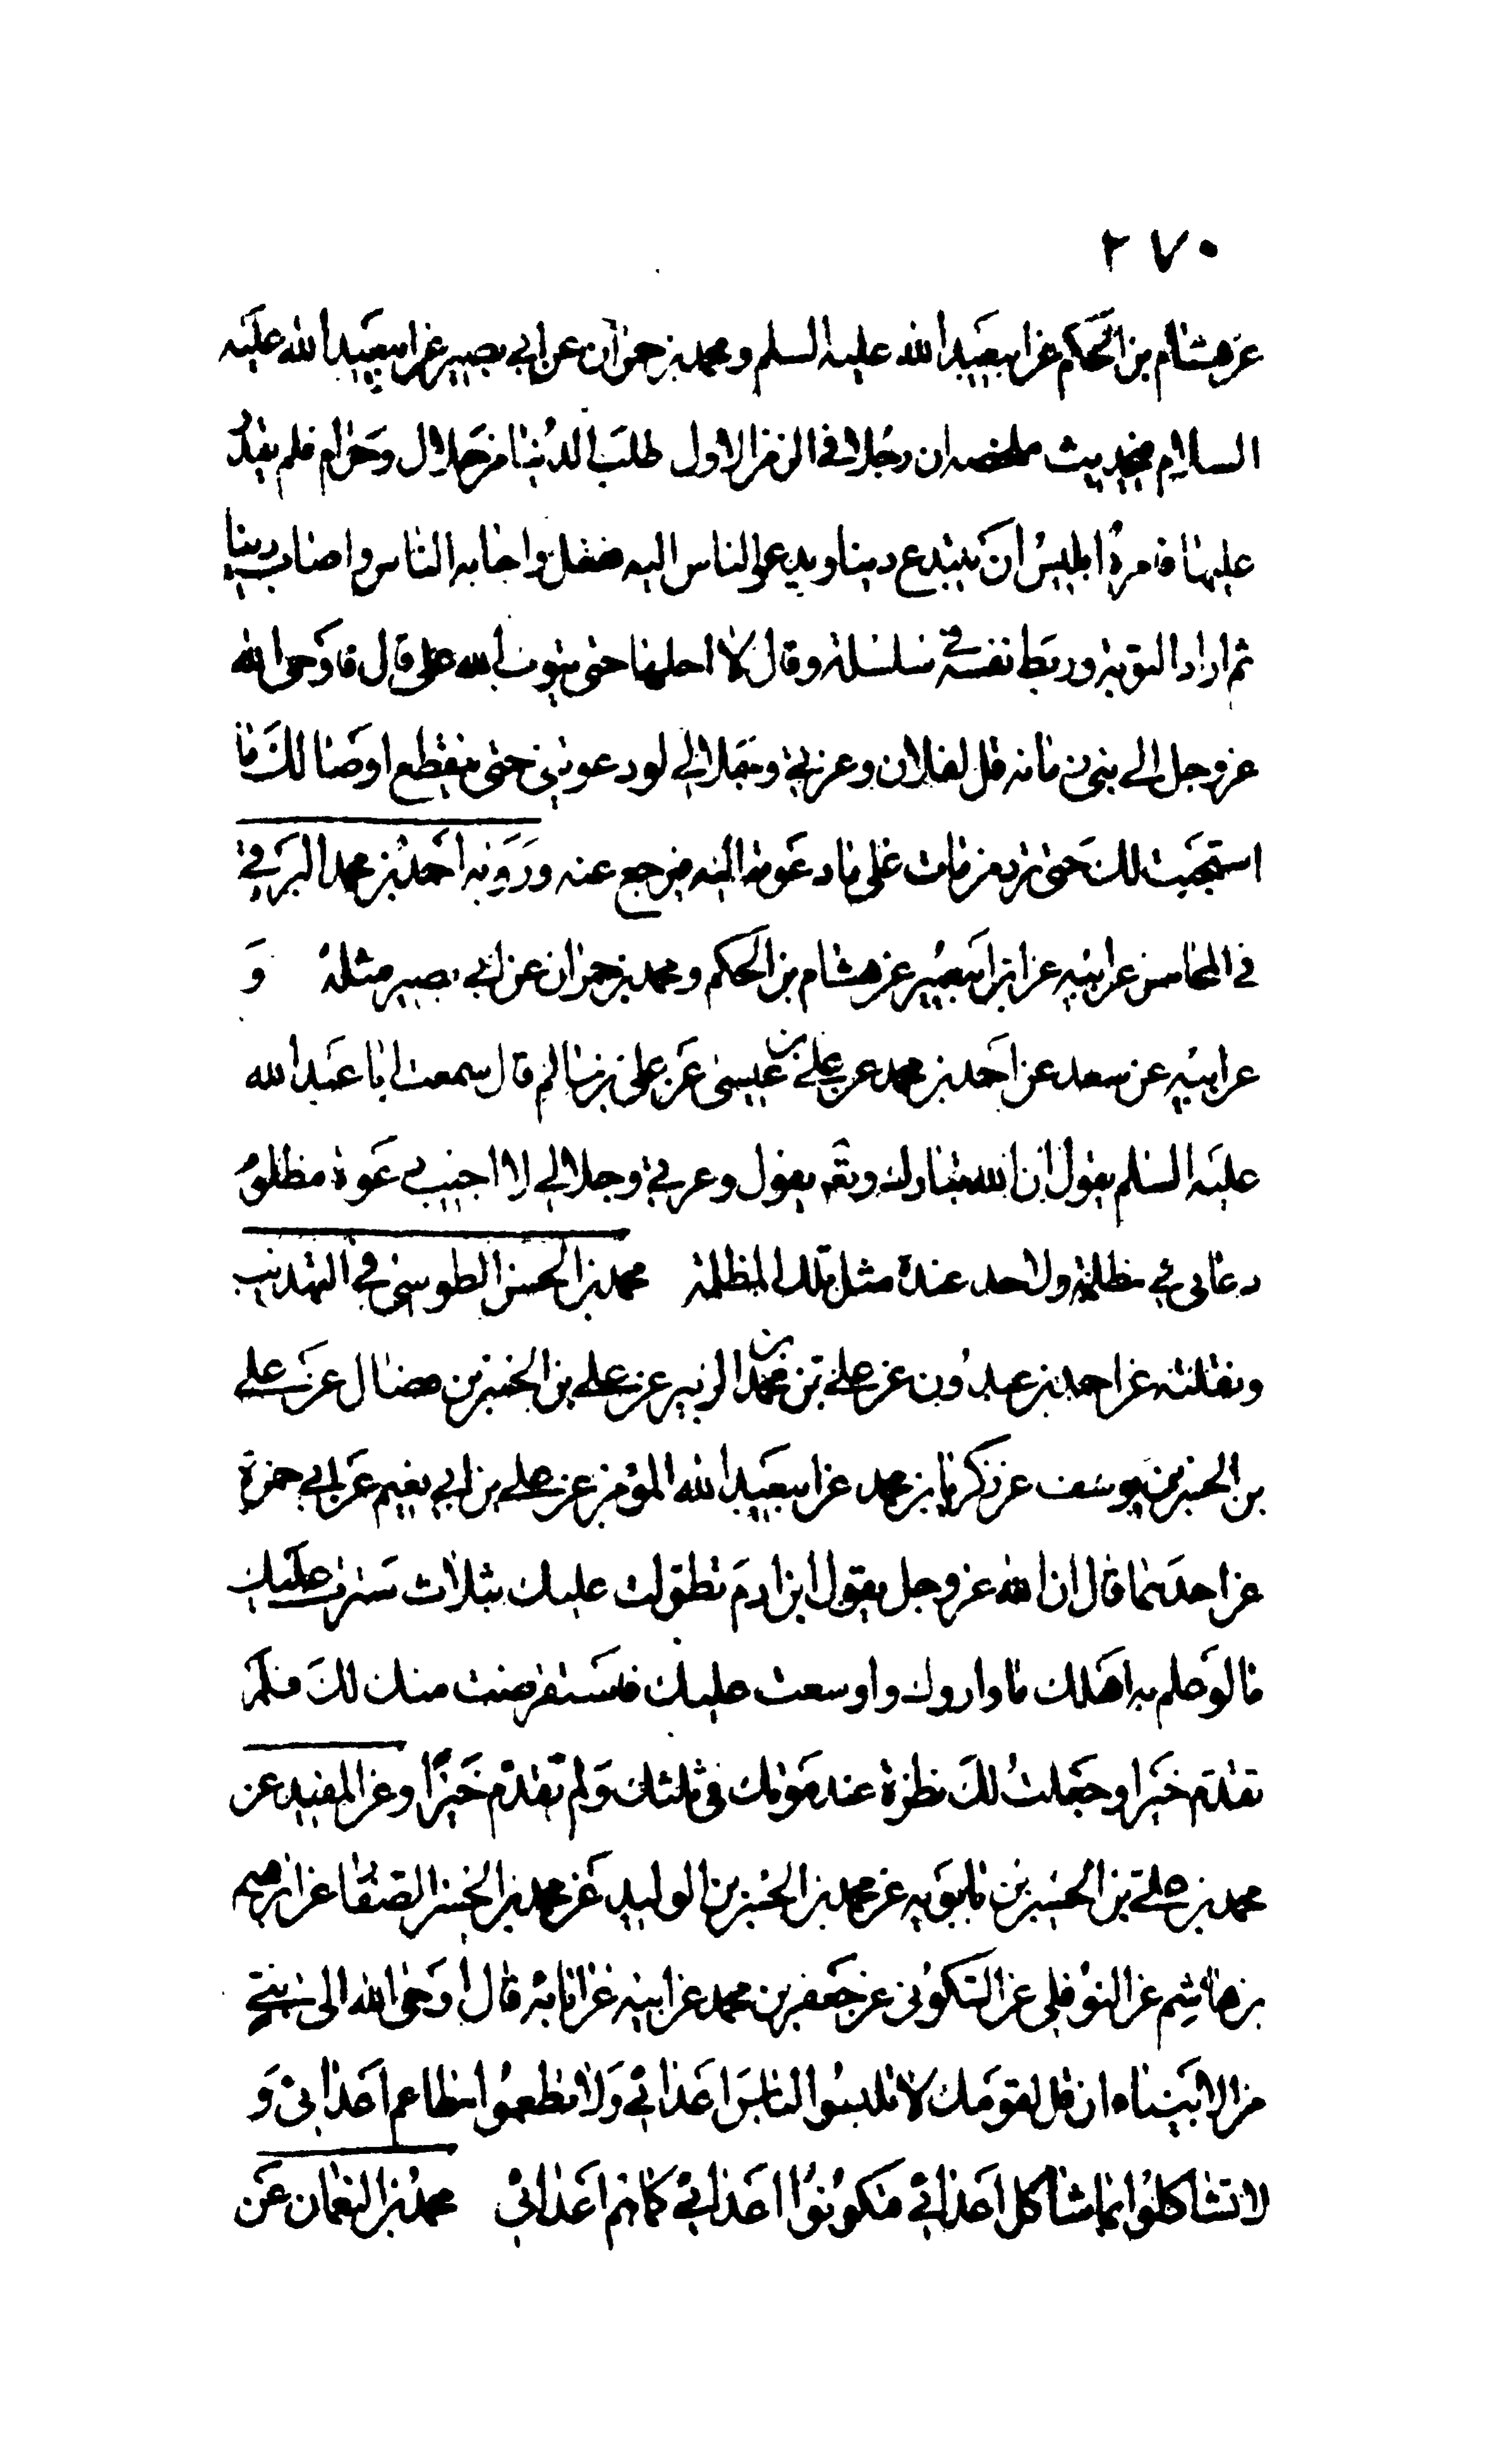 ٢٧٠
عن هشام بن الحكم عن ابيعبد الله عليه السلم ومحمد بن حمران عن ابي بصير عن ابيعبد الله عليه
السلام بحديث ملخصه ان رجلا في الزمن الاول طلب الدنيا من حلال وحرام فلم يقدر
عليها فامره ابليس ان يبتدع دينا ويدعو الناس اليه ففعل واجابه الناس واصاب دينا
ثم اراد التوبة وربط نفسه في سلسلة وقال لا احلها حتى يتوب الله علي قال فاوحى الله
عز وجل الى نبي زمانه قل لفلان وعزتي وجلالي لو دعوتني حتى ينقطع اوصالك ما
استجبت لك حتى ترد من مات على ما دعوته اليه فيرجع عنه ورويه احمد بن محمد البرقي
في المحاسن عن ابيه عن ابن ابيعمير عن هشام بن الحكم ومحمد بن حمران عن ابي بصير مثله و
عن ابيه عن سعد عن احمد بن محمد عن علي بن عيسى عن علي بن سالم قال سمعت ابا عبد الله
عليه السلم يقول ان الله تبارك وتعه يقول وعزتي وجلالي لا اجيب دعوة مظلوم
دعاني في مظلمة ولاحد عنده مثل تلك المظلمة محمد بن الحسن الطوسي في التهذيب
ونقلته عن احمد بن عبدون عن علي بن محمد بن الزبير عن علي بن الحسن بن فضال عن علي
بن الحسن بن يوسف عن زكريا بن محمد عن ابيعبد الله المؤمن عن علي بن ابي نعيم عن ابي حمزة
عن احدهما قال ان الله عز وجل يقول ابن ادم تطولت عليك بثلاث سترت عليك
ما لو علم به اهلك ما واروك واوسعت عليك فاستقرضت منك لك فلم
تقدم خيرا وجعلت لك نظرة عند موتك في ثلثك ولم تقدم خيرا وعن المفيد عن
محمد بن علي بن الحسين بن بابويه عن محمد بن الحسن بن الوليد عن محمد بن الحسن الصفا عن ابرهيم
بن هاشم عن النوفلي عن السكوني عن جعفر بن محمد عن ابيه عن ابائه قال اوحى الله الى نبي
من الانبياء ان قل لقومك لا تلبسوا لباس اعدائي ولا تطعموا مطاعم اعدائي و
لا تشاكلوا بما شاكل اعدائي فتكونوا اعدائي كما هم اعدائي محمد بن النعمان عن